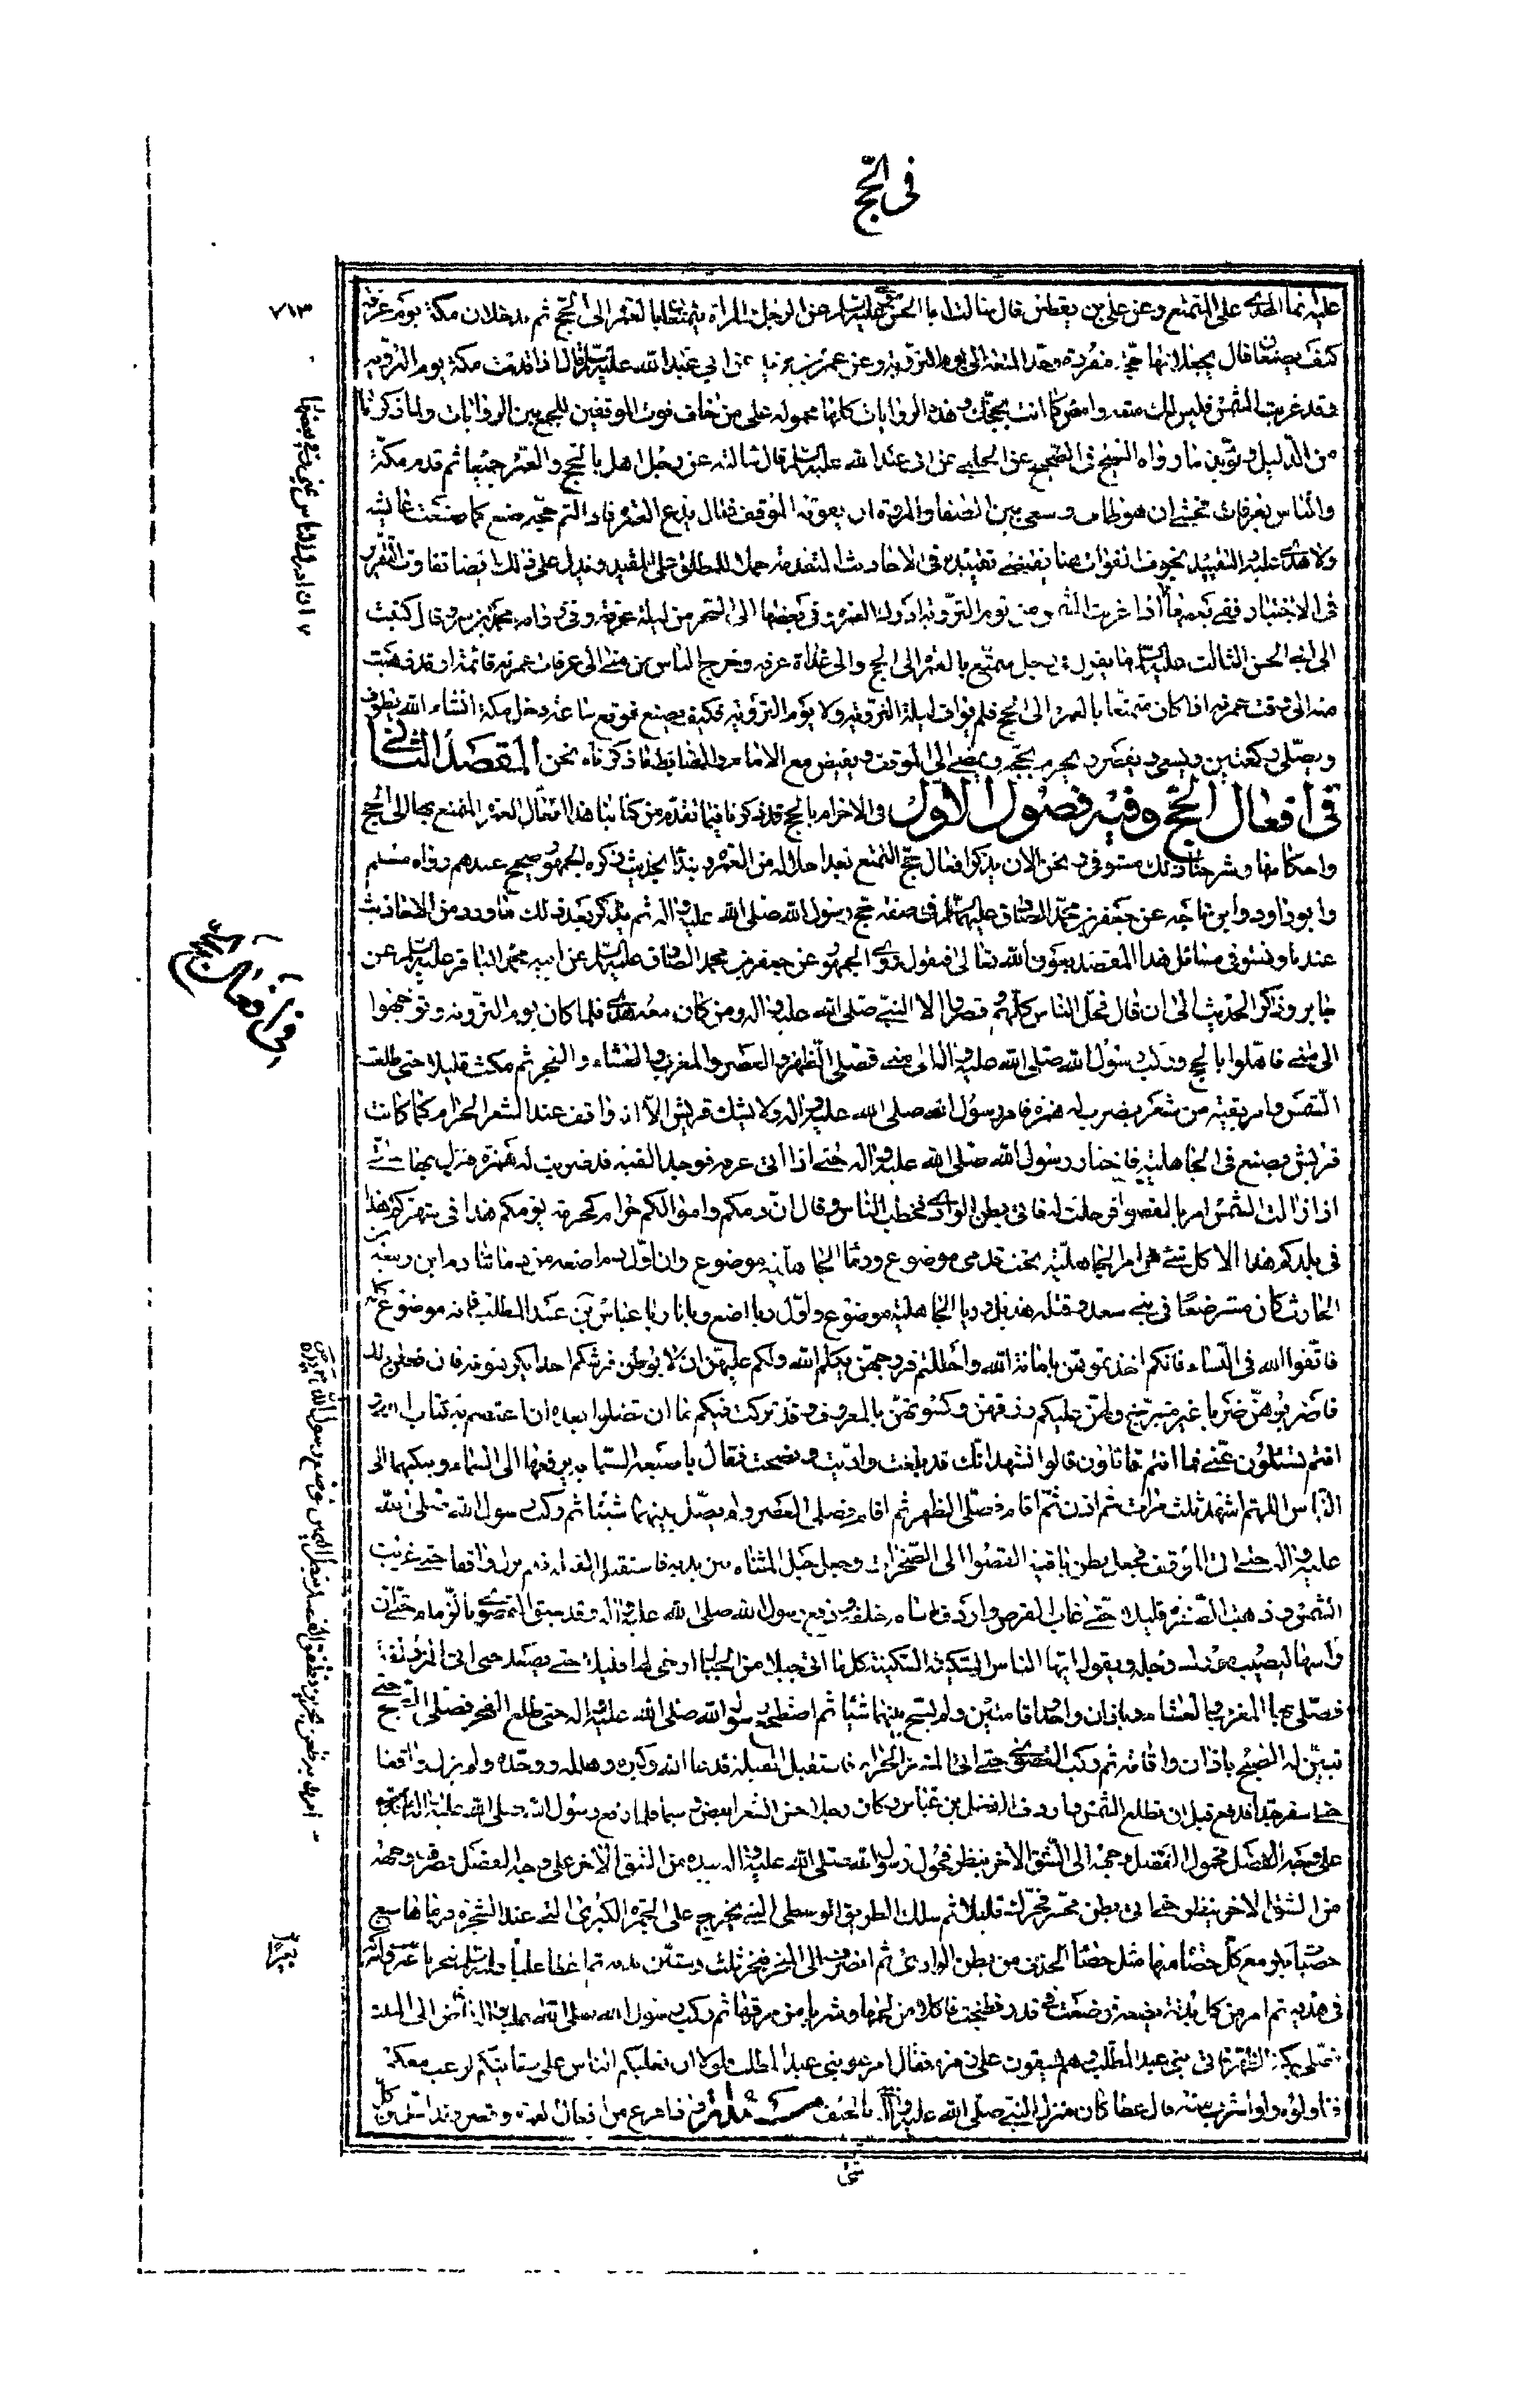 فى الحج
٧١٣
عليه انما الهدى على المتمتع وعن على بن يقطين قال سالت ابا الحسن موسى عليه السلم عن الرجل والمراة يتمتعان بالعمرة الى الحج ثم يدخلان مكة يوم عرفة
كيف يصنعان قال يجعلانها حجة مفردة وحد المتعة الى يوم التروية وعن عمر بن يزيد عن ابي عبد الله عليه السلم قال اذا قدمت مكة يوم التروية
وقد غربت الشمس فليس لك متعة وامض كما انت بحجك وهذه الروايات كلها محمولة على من خاف فوت الموقفين للجمع بين الروايات ولما ذكرنا
من الدليل ويؤيده ما رواه الشيخ فى الصحيح عن الحلبي عن ابى عبد الله عليه السلم قال سالته عن رجل اهل بالحج والعمرة جميعا ثم قدم مكة
والناس بعرفات فخشى ان هو طاف وسعى بين الصفا والمروة ان يفوته الموقف فقال يدع العمرة فاذا اتم حجه صنع كما صنعت عائشة
ولا هدى عليه التقييد بخوف الفوات هنا يقتضى تقييده فى الاحاديث المتقدمة حملا للمطلق على المقيد ويدل على ذلك ايضا تفاوت التقدير
فى الاخبار ففى بعضها اذا غربت الشمس من يوم التروية وفى بعضها الى السحر من ليلة عرفة وفى رواية محمد بن قال كتبت
الى ابى الحسن الثالث عليه السلم ما يقول فى رجل متمتع بالعمرة الى الحج وافى غداة عرفة وخرج الناس من منى الى عرفات عمرته قائمة او قد ذهبت
منه الى وقت عمرته اذا كان متمتعا بالعمرة الى الحج فلم يواف ليلة التروية ولا يوم التروية فكيف يصنع فوقع ساعة دخل مكة انشاء الله يطوف
ويصلى ركعتين ويسعى ويقصر ويحرم بحجه ويمضى الى الموقف ويفيض مع الامام والضابط ما ذكرناه نحن المقصد الثانى
فى افعال الحج وفيه فصول الاول فى الاحرام بالحج قد ذكرنا فيما تقدم من كتابنا هذا افعال العمرة المتمتع بها الى الحج
واحكامها وشرحنا ذلك مستوفى ونحن الان نذكر افعال حج التمتع بعد احلاله من العمرة ونبدا بحديث ذكره الجمهور صحيح عندهم رواه مسلم
وابو داود وابن ماجه عن جعفر بن محمد الصادق عليهما السلم فى صفة حج رسول الله صلى الله عليه واله ثم نذكر بعد ذلك ما ورد من الاحاديث
عندنا ونستوفى مسائل هذا المقصد بعون الله تعالى فنقول روى الجمهور عن جعفر بن محمد الصادق عليه السلم عن ابيه محمد الباقر عليه السلم عن
جابر وذكر الحديث الى ان قال فحل الناس كلهم وقصروا الا النبى صلى الله عليه واله ومن كان معه هدى فلما كان يوم التروية وتوجهوا
الى منى فاهلوا بالحج وركب رسول الله صلى الله عليه واله الى منى فصلى الظهر والعصر والمغرب والعشاء والفجر ثم مكث قليلا حتى طلعت
الشمس وامر بقبة من شعر يضرب له بنمرة فسار رسول الله صلى الله عليه واله ولا يشك قريش الا انه واقف عند المشعر الحرام كما كانت
قريش يصنع فى الجاهلية فاجتاز رسول الله صلى الله عليه واله حتى اذا اتى عرفة فوجد القبة قد ضربت له بنمرة فنزل بها حتى
اذا زالت الشمس امر بالقصوا فرحلت له فاتى بطن الوادى فخطب الناس وقال ان دمكم واموالكم حرام كحرمة يومكم هذا فى شهركم هذا
فى بلدكم هذا الا كل شىء من امر الجاهلية تحت قدمى موضوع ودماء الجاهلية موضوع وان اول دم اضعه من دمائنا دم ابن ربيعة بن
الحارث كان مسترضعا فى بنى سعد وقتله هذيل وربا الجاهلية موضوع واول ربا اضع ربانا ربا عباس بن عبد المطلب فانه موضوع كله
فاتقوا الله فى النساء فانكم اخذتموهن بامانة الله واحللتم فروجهن بكلم الله ولكم عليهن ان لا يوطئن فرشكم احدا يكرهونه فان فعلن ذلك
فاضربوهن ضربا غير مبرح ولهن عليكم رزقهن وكسوتهن بالمعروف وقد تركت فيكم ما ان تضلوا بعده ان اعتصم به كتاب الله
انتم تسئلون عنى فما انتم قائلون قالوا نشهد انك قد بلغت واديت ونصحت فقال باصبعه السبابة يرفعها الى السماء وينكبها الى
الناس اللهم اشهد ثلث مرات ثم اذن ثم اقام فصلى الظهر ثم اقام فصلى العصر ولم يصل بينهما شيئا ثم ركب رسول الله صلى الله
عليه واله حتى اتى الموقف فجعل بطن ناقته القصوا الى الصخرات وجعل حبل المشاة بين يديه فاستقبل القبلة فلم يزل واقفا حتى غربت
الشمس وذهبت الصفرة قليلا حتى غاب القرص واردف اسامة خلفه ودفع رسول الله صلى الله عليه واله وقد شنق القصوى بالزمام حتى ان
راسها ليصيب مورك رحله ويقول ايها الناس السكينة السكينة كلما اتى جبلا من الجبال ارخى لها قليلا حتى يصعد حتى اتى المزدلفة
فصلى بها المغرب والعشاء باذان واحد واقامتين ولم يسبح بينهما شيئا ثم اضطجع رسول الله صلى الله عليه واله حتى طلع الفجر فصلى الصبح حتى
تبين له الصبح باذان واقامة ثم ركب القصوى حتى اتى المشعر الحرام فاستقبل القبلة فدعا الله وكبره وهلله ووحده ولم يزل واقفا
حتى اسفر جدا فدفع قبل ان تطلع الشمس واردف الفضل بن عباس وكان رجلا حسن الشعر ابيض وسيما فلما دفع رسول الله صلى الله عليه واله
على وجه الفضل فحول الفضل وجهه الى الشق الاخر ينظر فحول رسول الله صلى الله عليه واله يده من الشق الاخر على وجه الفضل فصرف وجهه
من الشق الاخر ينظر حتى اتى بطن محسر فحرك قليلا ثم سلك الطريق الوسطى التى يخرج على الجمرة الكبرى التى عند الشجرة فرماها بسبع
حصيات يكبر مع كل حصاة منها مثل حصا الحذف من بطن الوادى ثم انصرف الى المنحر فنحر ثلث وستين بدنة ثم اعطا عليا عليه السلم فنحر ما غبر واشركه
فى هديه ثم امر من كل بدنة ببضعة فوضعت فى قدر فطبخت فاكلا من لحمها وشربا من مرقها ثم ركب رسول الله صلى الله عليه واله فافاض الى البيت
فصلى بمكة الظهر فاتى بنى عبد المطلب وهم يسقون على زمزم فقال انزعوا بنى عبد المطلب فلولا ان يغلبكم الناس على سقايتكم لنزعت معكم
فناولوه دلوا شرب منه قال عطا كان منزل النبى صلى الله عليه واله بالخيف مسئلة اذا فرغ من افعال العمرة وقصر وقد احل من كل
شئ
فى افعال الحج